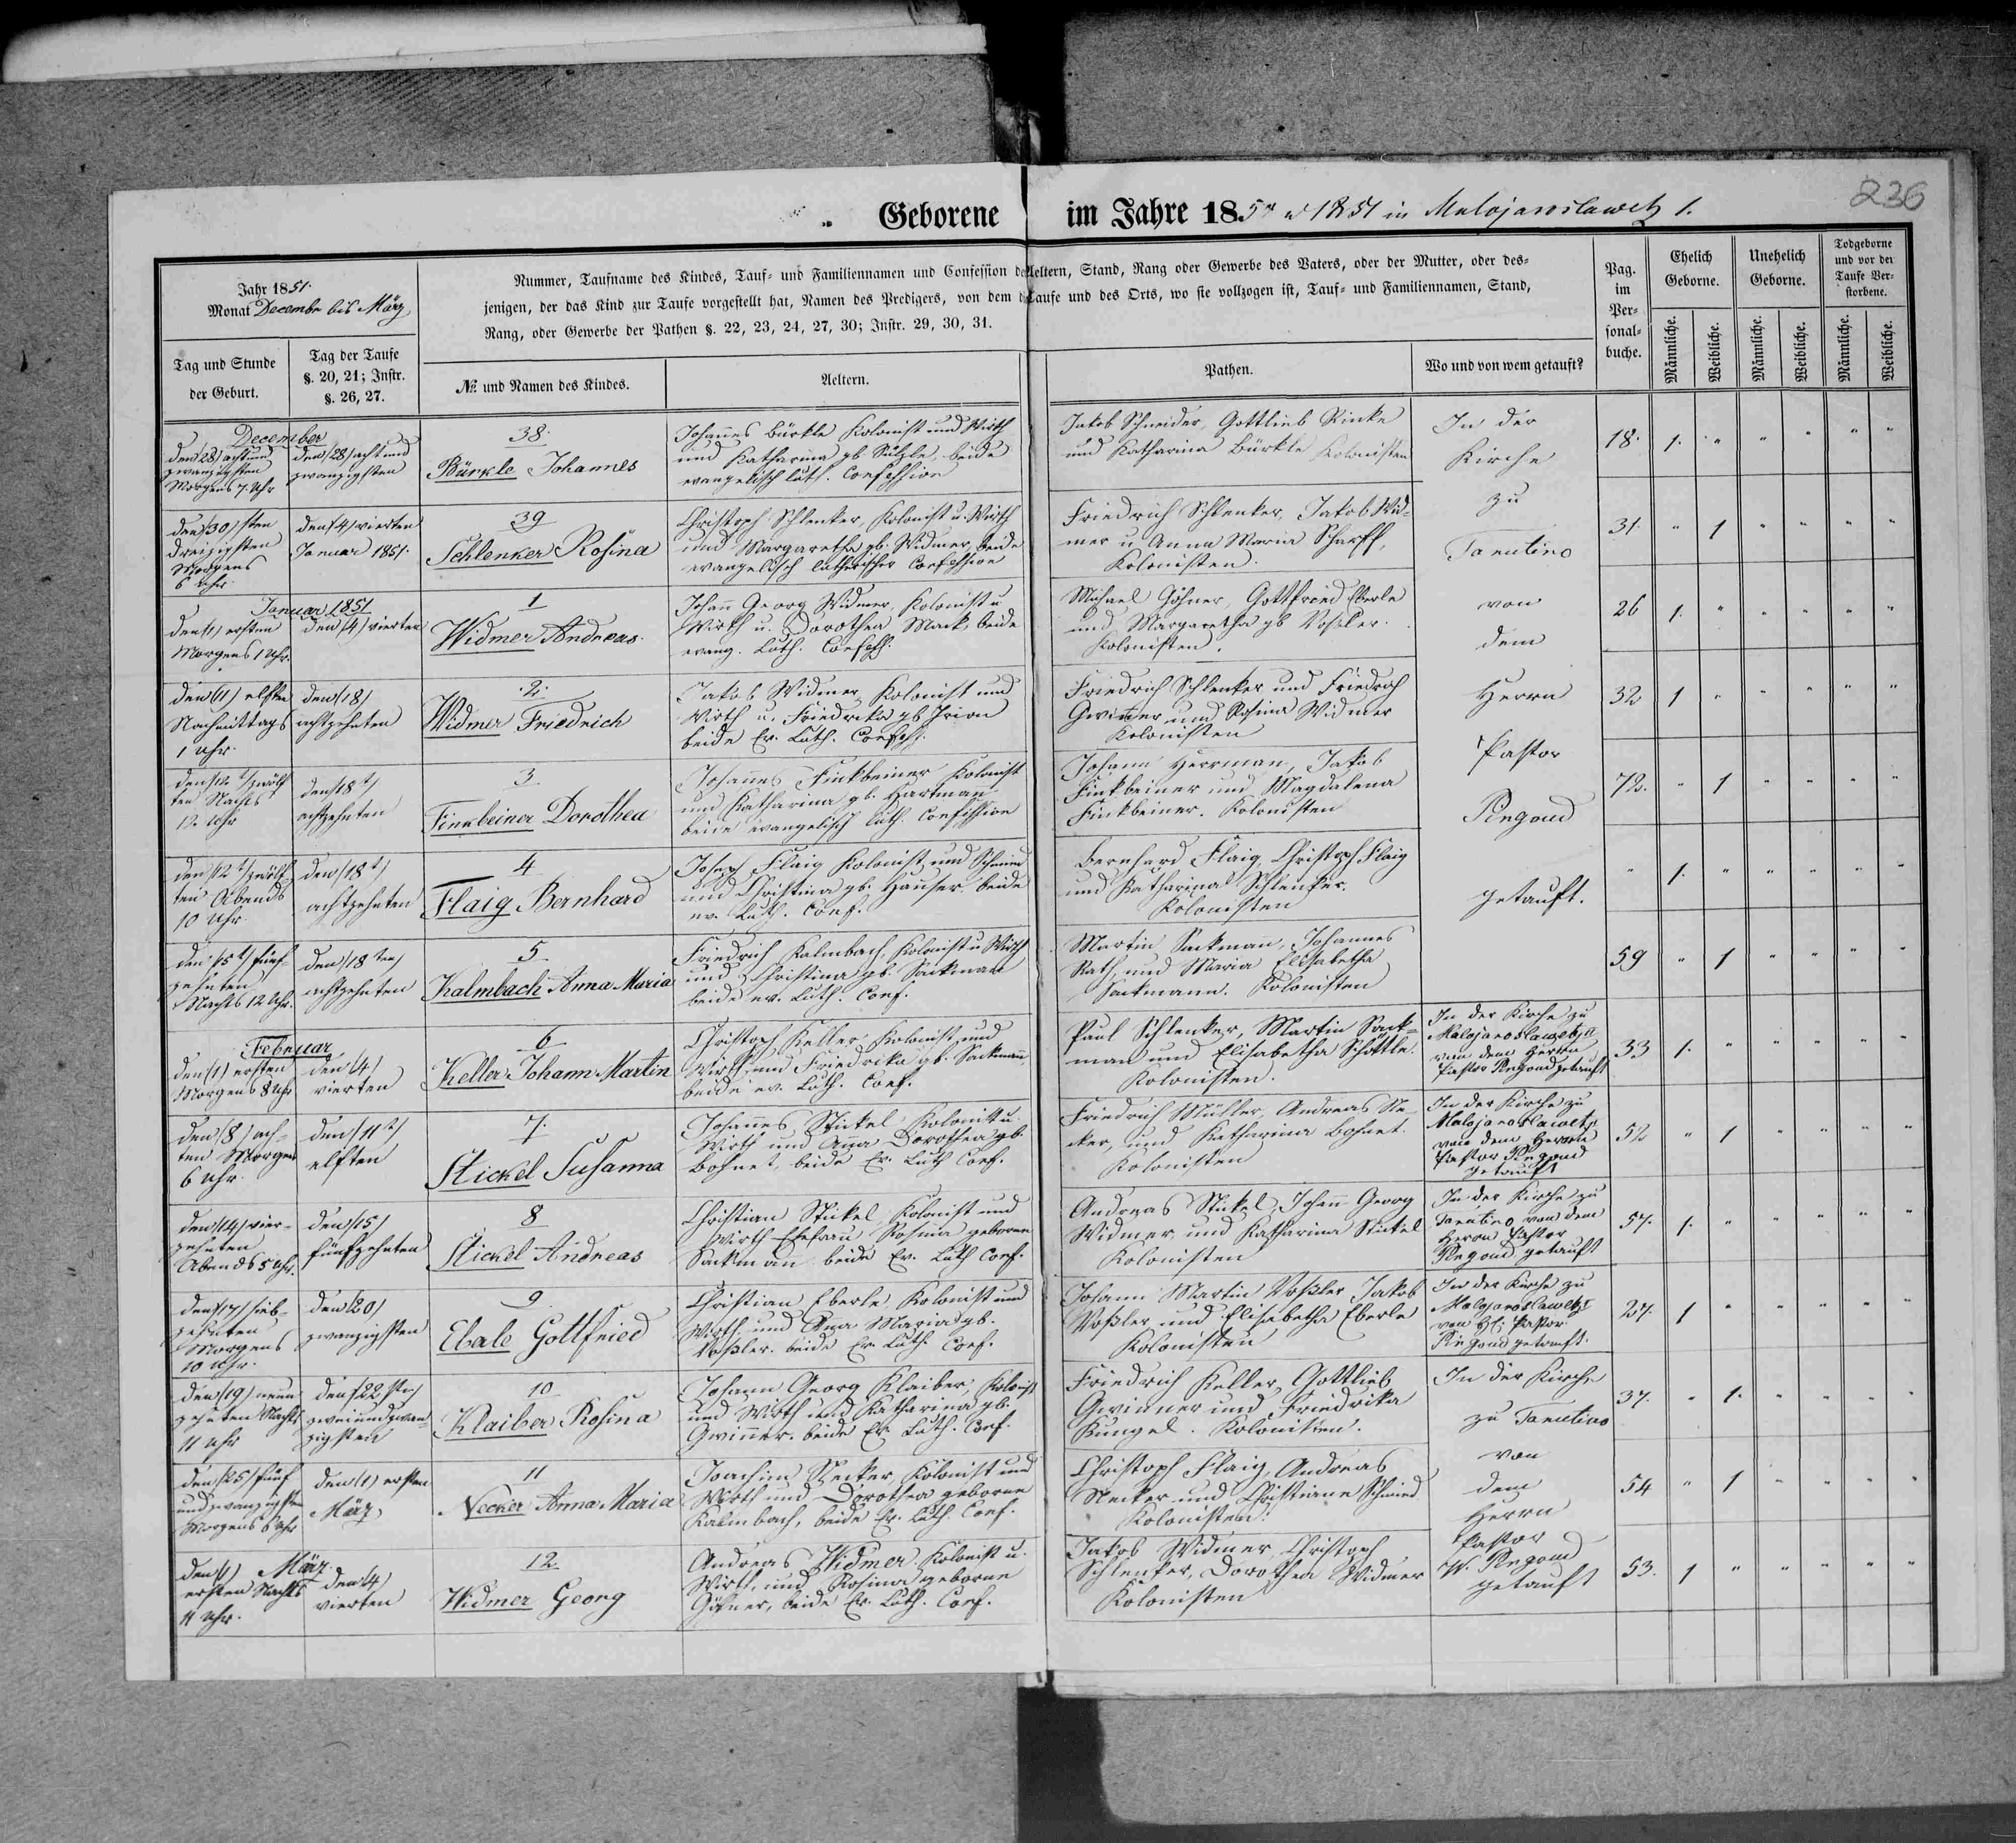 236
Geborene im Jahre 1850 u 1851 in Malojaroslawetz 1.
Jahr 1851.
Monat Decembr bis März
Nummer, Taufname des Kindes, Tauf- und Familiennamen und Confession der Aeltern, Stand, Rang oder Gewerbe des Vaters, oder der Mutter, oder des-
jenigen, der das Kind zur Taufe vorgestellt hat, Namen des Predigers, von dem die Taufe und des Orts, wo sie vollzogen ist, Tauf- und Familiennamen, Stand,
Rang, oder Gewerbe der Pathen §. 22, 23, 24, 27, 30; Instr. 29, 30, 31.
Tag und Stunde
der Geburt.
Tag der Taufe
§. 20, 21; Instr.
§. 26, 27.
№ und Namen des Kindes.
Aeltern.
Pathen.
Wo und von wem getauft?
Pag.
im
Per-
sonal-
buche.
Ehelich
Geborne.
Unehelich
Geborne.
Todgeborne
und vor der
Taufe Ver-
storbene.
Männliche.
Weibliche.
Männliche.
Weibliche.
Männliche.
Weibliche.
December
den (28) acht und
zwanzigsten
Morgens 7. Uhr
den (28) acht und
zwanzigsten
38.
Bürkle Johannes
Johannes Bürkle Kolonist und Wirth
und Katharina gb. Sülzle beide
evangelisch luth. Confession
Jakob Schneider, Gottlieb Rinke
und Katharina Bürkle Kolonisten
In der
Kirche
zu
Tarutino
von
dem
Herrn
Pastor
Pingoud
getauft.
18. 1. " " " " "
den (30) sten
dreizigsten
Morgens
6 Uhr.
den (4) vierten
Januar 1851.
39
Schlenker Rosina
Christoph Schlenker, Kolonist u. Wirth
und Margaretha gb. Widmer, beide
evangelisch lutherischer Confession
Friedrich Schlenker, Jakob Wid-
mer u. Anna Maria Scharff,
Kolonisten.
31. " 1 " " " "
Januar 1851
den (1) ersten
Morgens 1 Uhr.
den (4) vierten
1
Widmer Andreas.
Johann Georg Widmer, Kolonist u
Wirth u. Dorothea Mack, beide
evang. Luth. Confess.
Michael Göhner, Gottfried Eberle
und Margaretha gb Voßler.
Kolonisten.
26 1. " " " " "
den (11) elften
Nachmittags
1 Uhr.
den (18)
achtzehnten
2.
Widmer Friedrich
Jakob Widmer, Kolonist und
Wirth u. Friedrika gb Irion
beide Ev. Luth. Confess.
Friedrich Schlenker und Friedrich
Gwinner und Rosina Widmer
Kolonisten
32 1 " " " " "
den (12t) zwölf
ten Nachts
12. Uhr
den (18t)
achtzehnten
3
Finkbeiner Dorothea
Johannes Finkbeiner Kolonist
und Katharina gb. Hartman
beide evangelisch luth. Confession
Johann Herrman, Jakob
Finkbeiner und Magdalena
Finkbeiner. Kolonisten
72. " 1 " " " "
den (12t) zwölf
ten Abends
10 Uhr.
den (18t)
achtzehnten
4
Flaig Bernhard
Joseph Flaig Kolonist und Schmied
und Christina gb. Hauser beide
ev. Luth. Conf.
Bernhard Flaig, Christoph Flaig
und Katharina Schlenker.
Kolonisten
" 1. " " " " "
den (15t) fünf-
zehnten
Nachts 12 Uhr.
den (18ten)
achtzehnten
5
Kalmbach Anna Maria
Friedrich Kalmbach, Kolonist u Wirth
und Christina gb. Sackman
beide ev. Luth. Conf.
Martin Sackmann, Johannes
Rath, und Maria Elisabetha
Sackmann. Kolonisten
59 " 1 " " " "
Februar
den (1) ersten
Morgens 8 Uhr
den (4)
vierten
6
Keller Johann Martin
Christoph Keller Kolonist und
Wirth und Friedrika gb. Sackmann,
beide ev. Luth. Conf.
Paul Schlenker, Martin Sack-
man und Elisabetha Schöttle.
Kolonisten.
In der Kirche zu
Malojaroslawetz
von dem Herrn
Pastor Pingoud getauft
33 1. " " " " "
den (8) ach-
ten Morgens
6 Uhr.
den (11t)
elften
7.
Stickel Susanna
Johannes Stickel Kolonist u.
Wirth und Anna Dorothea gb.
Bohnet, beide Ev. Luth Conf.
Friedrich Müller, Andreas Ne-
cker, und Katharina Bohnet.
Kolonisten
In der Kirche zu
Malojaroslawetz
von dem Herrn
Pastor Pingoud
getauft
52 " 1 " " " "
den (14) vier-
zehnten
Abends 5 Uhr.
den (15)
fünfzehnten
8
Stickel Andreas
Christian Stickel, Kolonist und
Wirth Ehefrau Rosina geboren
Sackman beide Ev. Luth Conf.
Andreas Stickel, Johann Georg
Widmer und Katharina Stickel
Kolonisten
In der Kirche zu
Tarutino von dem
Herrn Pastor
Pingoud getauft
57. 1. " " " " "
den (17) sieb-
zehnten
Morgens
10 Uhr.
den (20)
zwanzigsten
9
Eberle Gottfried
Christian Eberle, Kolonist und
Wirth, und Anna Maria gb.
Voßler. beide Ev. Luth. Conf.
Johann Martin Voßler Jakob
Voßler und Elisabetha Eberle
Kolonisten
In der Kirche zu
Malojaroslawetz
von H. Pastor
Pingoud getauft.
27. 1 " " " " "
den (19) neun
zehnten Nachts
11 Uhr
den (22 sten)
zweiundzwan-
zigsten
10
Klaiber Rosina
Johann Georg Klaiber, Kolonist
und Wirth und Katharina gb.
Gwinner. beide Ev. Luth. Conf.
Friedrich Keller, Gottlieb
Gwinner und Friedrika
Kungel. Kolonisten.
In der Kirche
zu Tarutino
von
dem
Herrn
Pastor
W. Pingoud
getauft
37. " 1. " " " "
den (25) fünf
und zwanzigsten
Morgens 6 Uhr
den (1) ersten
März
11
Necker Anna Maria
Joachim Necker, Kolonist und
Wirth und Dorothea geborne
Kalmbach, beide Ev. Luth. Conf.
Christoph Flaig, Andreas
Necker und Christiane Schmied
Kolonisten.
54 " 1 " " " "
März.
den (1)
ersten Nachts
11 Uhr.
den (4)
vierten
12
Widmer Georg
Andreas Widmer. Kolonist u.
Wirth, und Rosina geborne
Göhner, beide Ev. Luth. Conf.
Jakob Widmer, Christoph
Schlenker, Dorothea Widmer
Kolonisten
53. 1 " " " " "